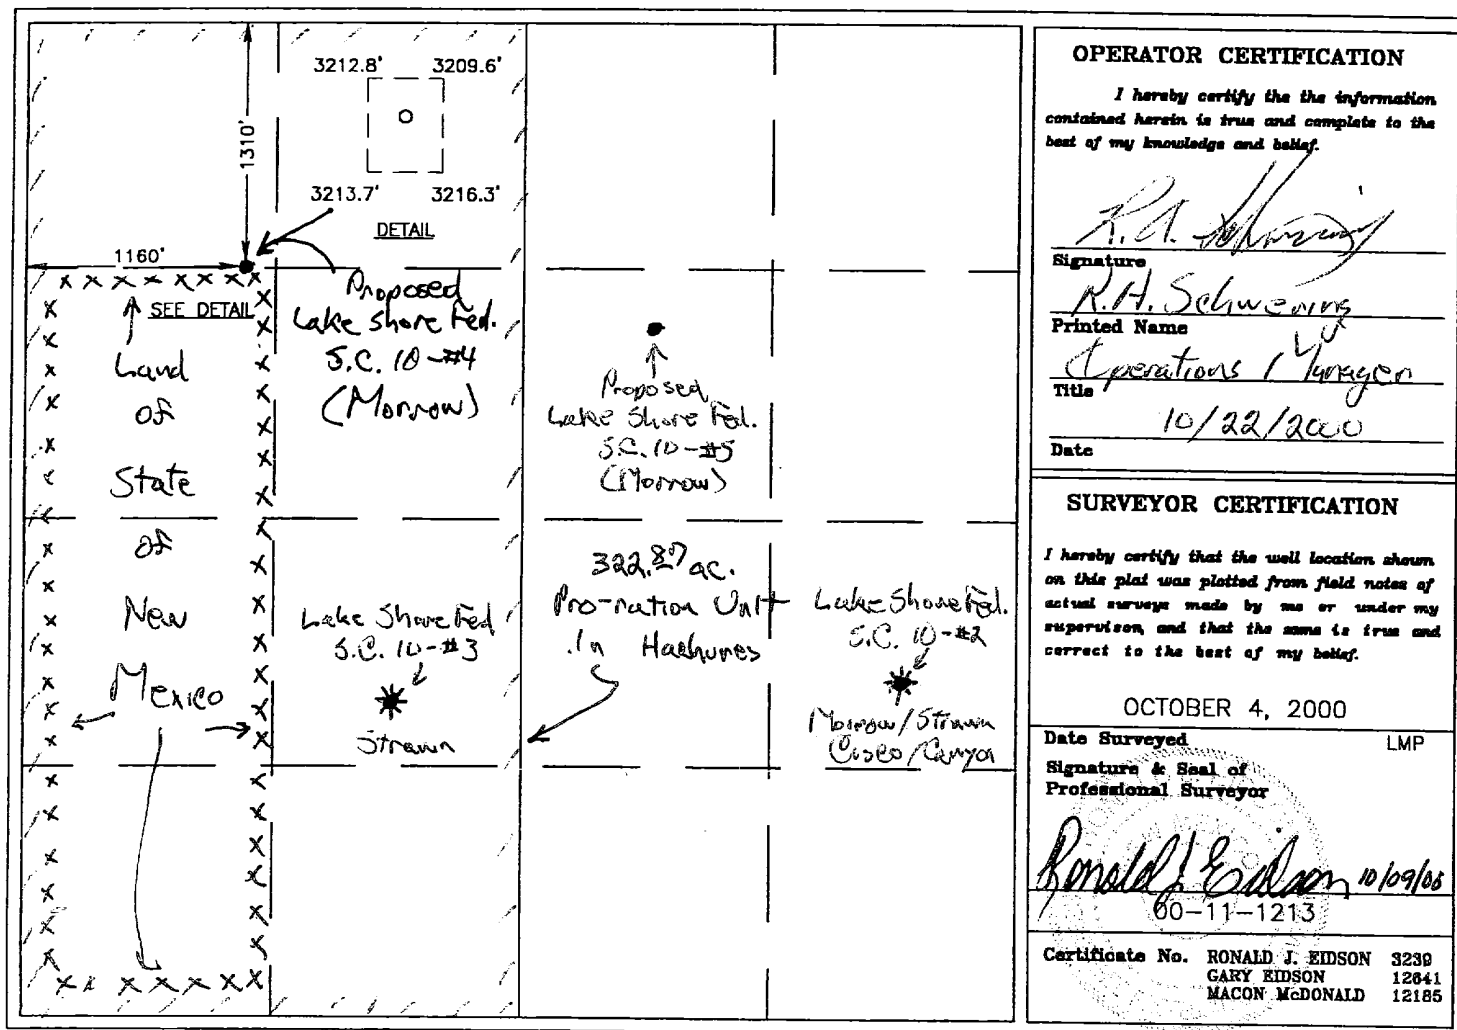 3212.8' 3209.6'
1310'
3213.7' 3216.3'
DETAIL
1160'
SEE DETAIL
Proposed
Lake Shore Fed.
S.C. 10-#4
(Morrow)
Land
of
State
of
New
Mexico
Proposed
Lake Shore Fed.
S.C. 10-#5
(Morrow)
322.87 ac.
Pro-ration Unit
In Hachures
Lake Shore Fed
S.C. 10-#3
Strawn
Lake Shore Fed.
S.C. 10-#2
Morrow/Strawn
Cisco/Canyon
OPERATOR CERTIFICATION
I hereby certify the the information
contained herein is true and complete to the
best of my knowledge and belief.
R.A. Schwering
Signature
R.A. Schwering
Printed Name
Operations Manager
Title
10/22/2000
Date
SURVEYOR CERTIFICATION
I hereby certify that the well location shown
on this plat was plotted from field notes of
actual surveys made by me or under my
supervison, and that the same is true and
correct to the best of my belief.
OCTOBER 4, 2000
Date Surveyed LMP
Signature & Seal of
Professional Surveyor
Ronald J. Eidson 10/09/00
00-11-1213
Certificate No. RONALD J. EIDSON 3239
GARY EIDSON 12641
MACON McDONALD 12185